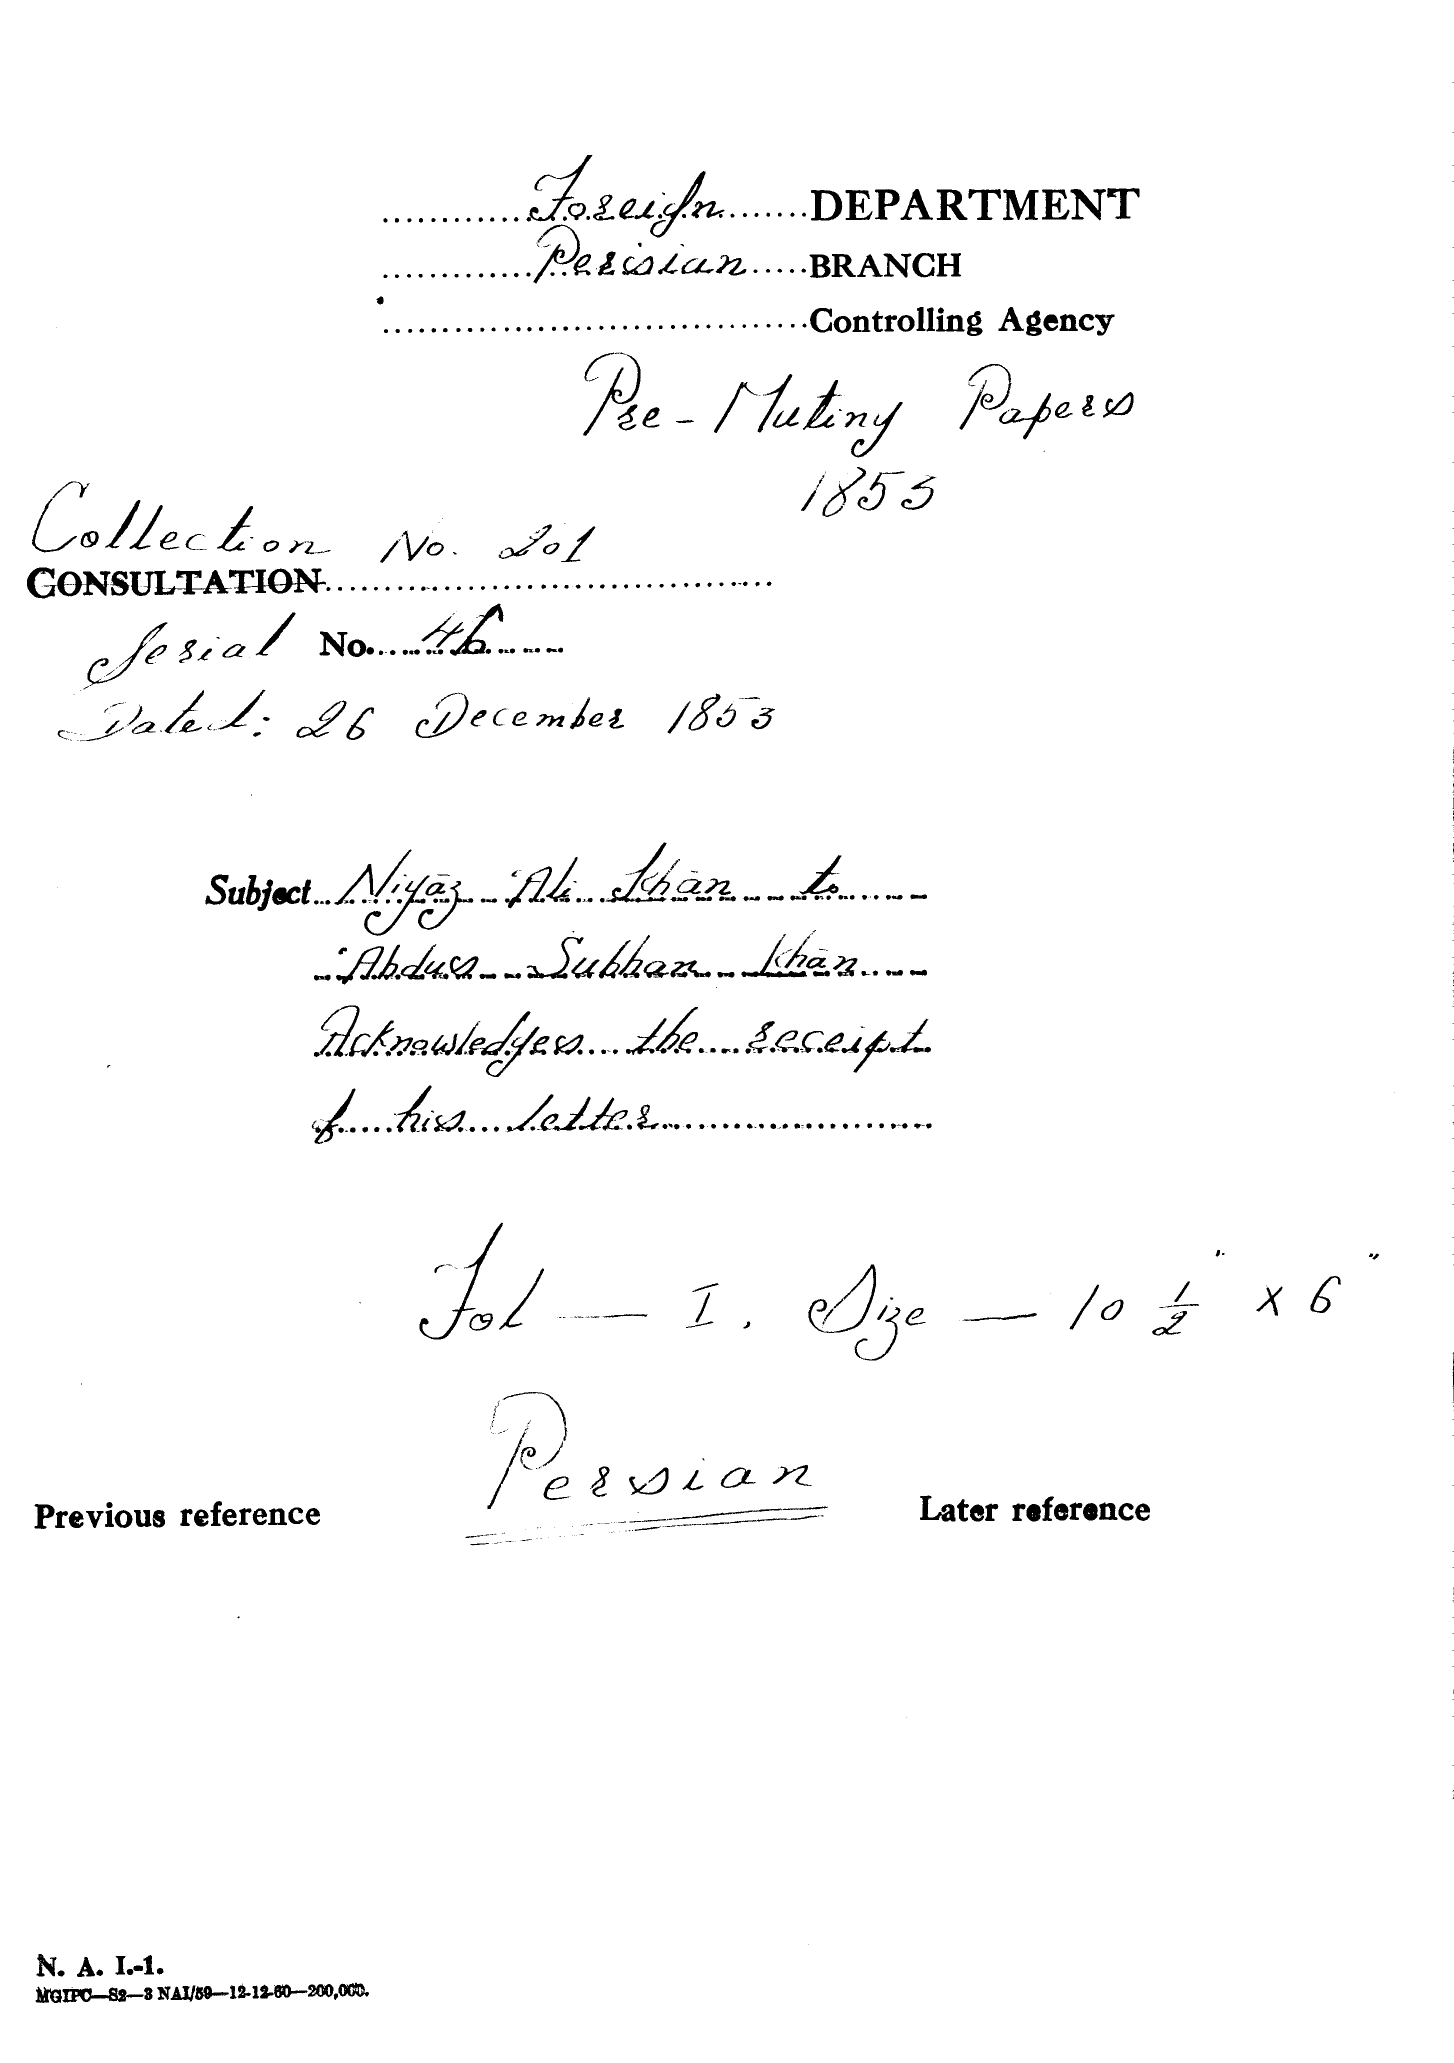 Foreign DEPARTMENT
Persian BRANCH
Controlling Agency
Pre-Mutiny Papers
1853
Collection No. 201
CONSULTATION
Serial No. 46
Dated: 26 December 1853
Subject Niyāz 'Ali Khān to
'Abdus Subhan Khān
Acknowledges the receipt
of his letter
Fol — I. Size — 10 1/2" x 6"
Persian
Previous reference Later reference
N. A. I.-1.
MGIPC—S2—3 NAI/59—12-12-60—200,000.